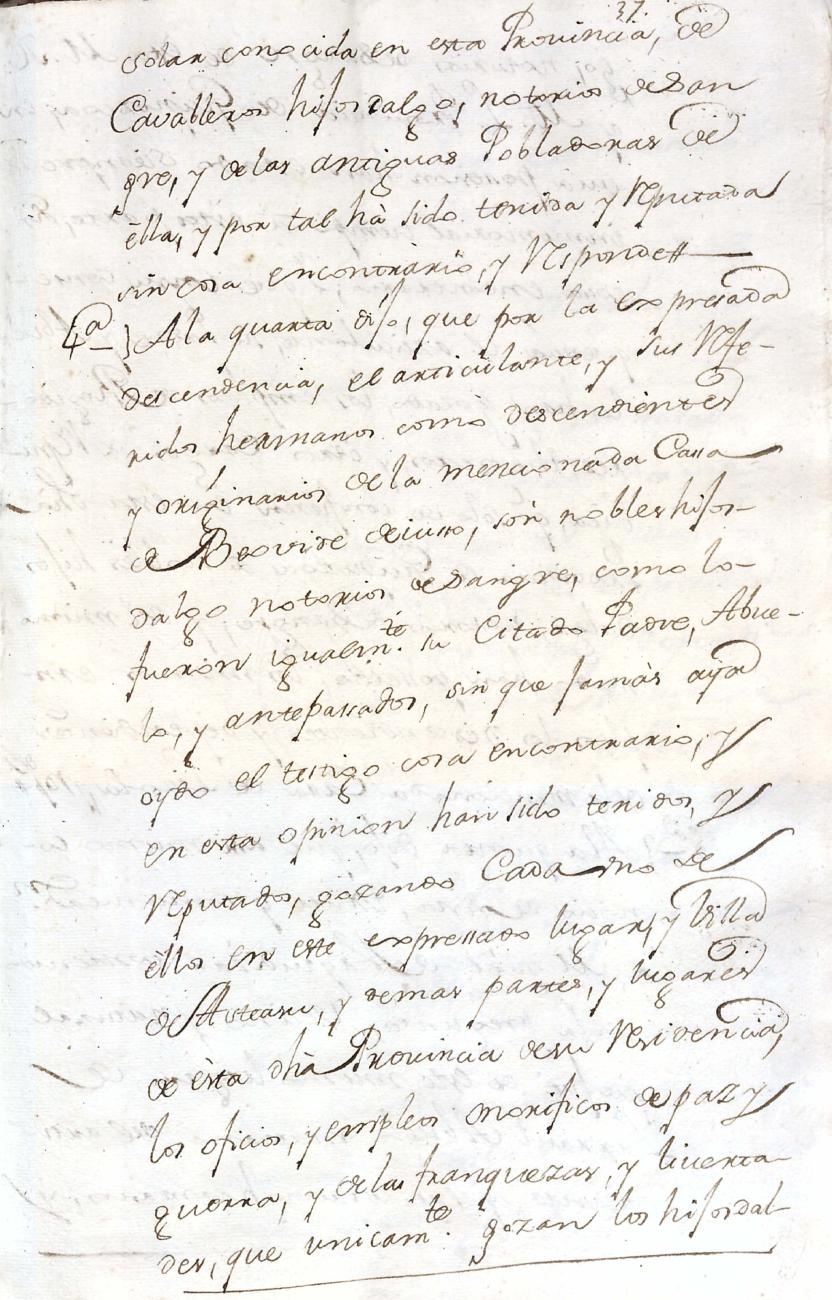 37
solar conocida en esta Provincia, de
Cavalleros hijos dalgo, notorios de San
gre, y de las antiguas Pobladoras de
èlla, y por tal hà sido tenida y Reputada
sin cosa encontrario, y Responde
4ª } A la quarta dijo, que por la expresada
descendencia, el articulante, y sus Refe-
ridos hermanos como descendientes
y originarios de la mencionada Cassa
de Beovide de iusso, són nobles hijos-
dalgo notorios de Sangre, como lo-
fueron igualmte. su Citado Padre, Abue-
lo, y antepassados, sin que jamàs aÿa
oydo el testigo cosa encontrario, y
en esta opinion han sido tenidos, y
Reputados, gozando Cada vno de
èllos en este expressado lugar, y Villa
de Asteasu, y demas partes, y lugares
de èsta dhà Provincia de su Residencia,
los oficios, y empleos onorificos de paz y
guerra, y de las franquezas, y liverta-
des, que unicamte. gozan los hijosdal-